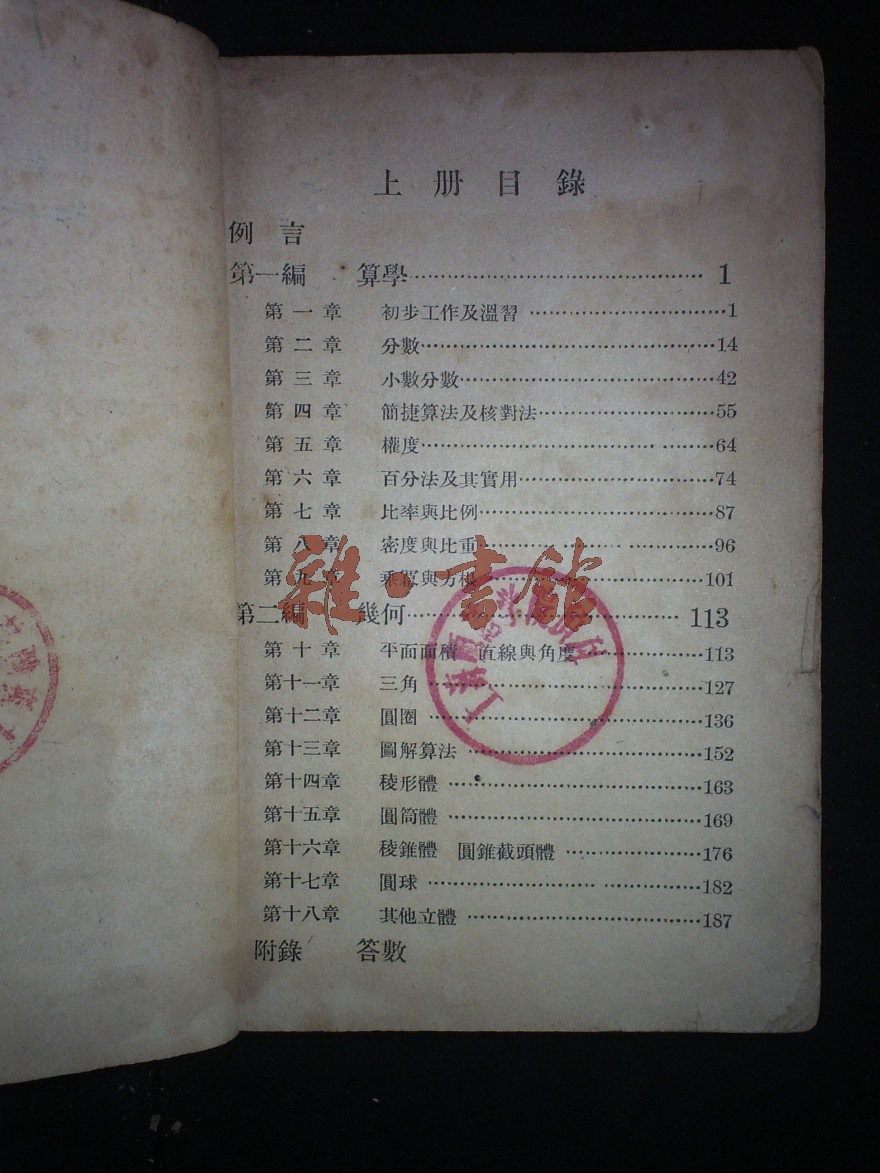 上册目錄
例言
第一編 算學 1
第一章 初步工作及溫習 1
第二章 分數 14
第三章 小數分數 42
第四章 簡捷算法及核對法 55
第五章 權度 64
第六章 百分法及其實用 74
第七章 比率與比例 87
第八章 密度與比重 96
第九章 乘冪與方根 101
第二編 幾何 113
第十章 平面面積 直線與角度 113
第十一章 三角 127
第十二章 圓圈 136
第十三章 圖解算法 152
第十四章 稜形體 163
第十五章 圓筒體 169
第十六章 稜錐體 圓錐截頭體 176
第十七章 圓球 182
第十八章 其他立體 187
附錄 答數
雜·書館